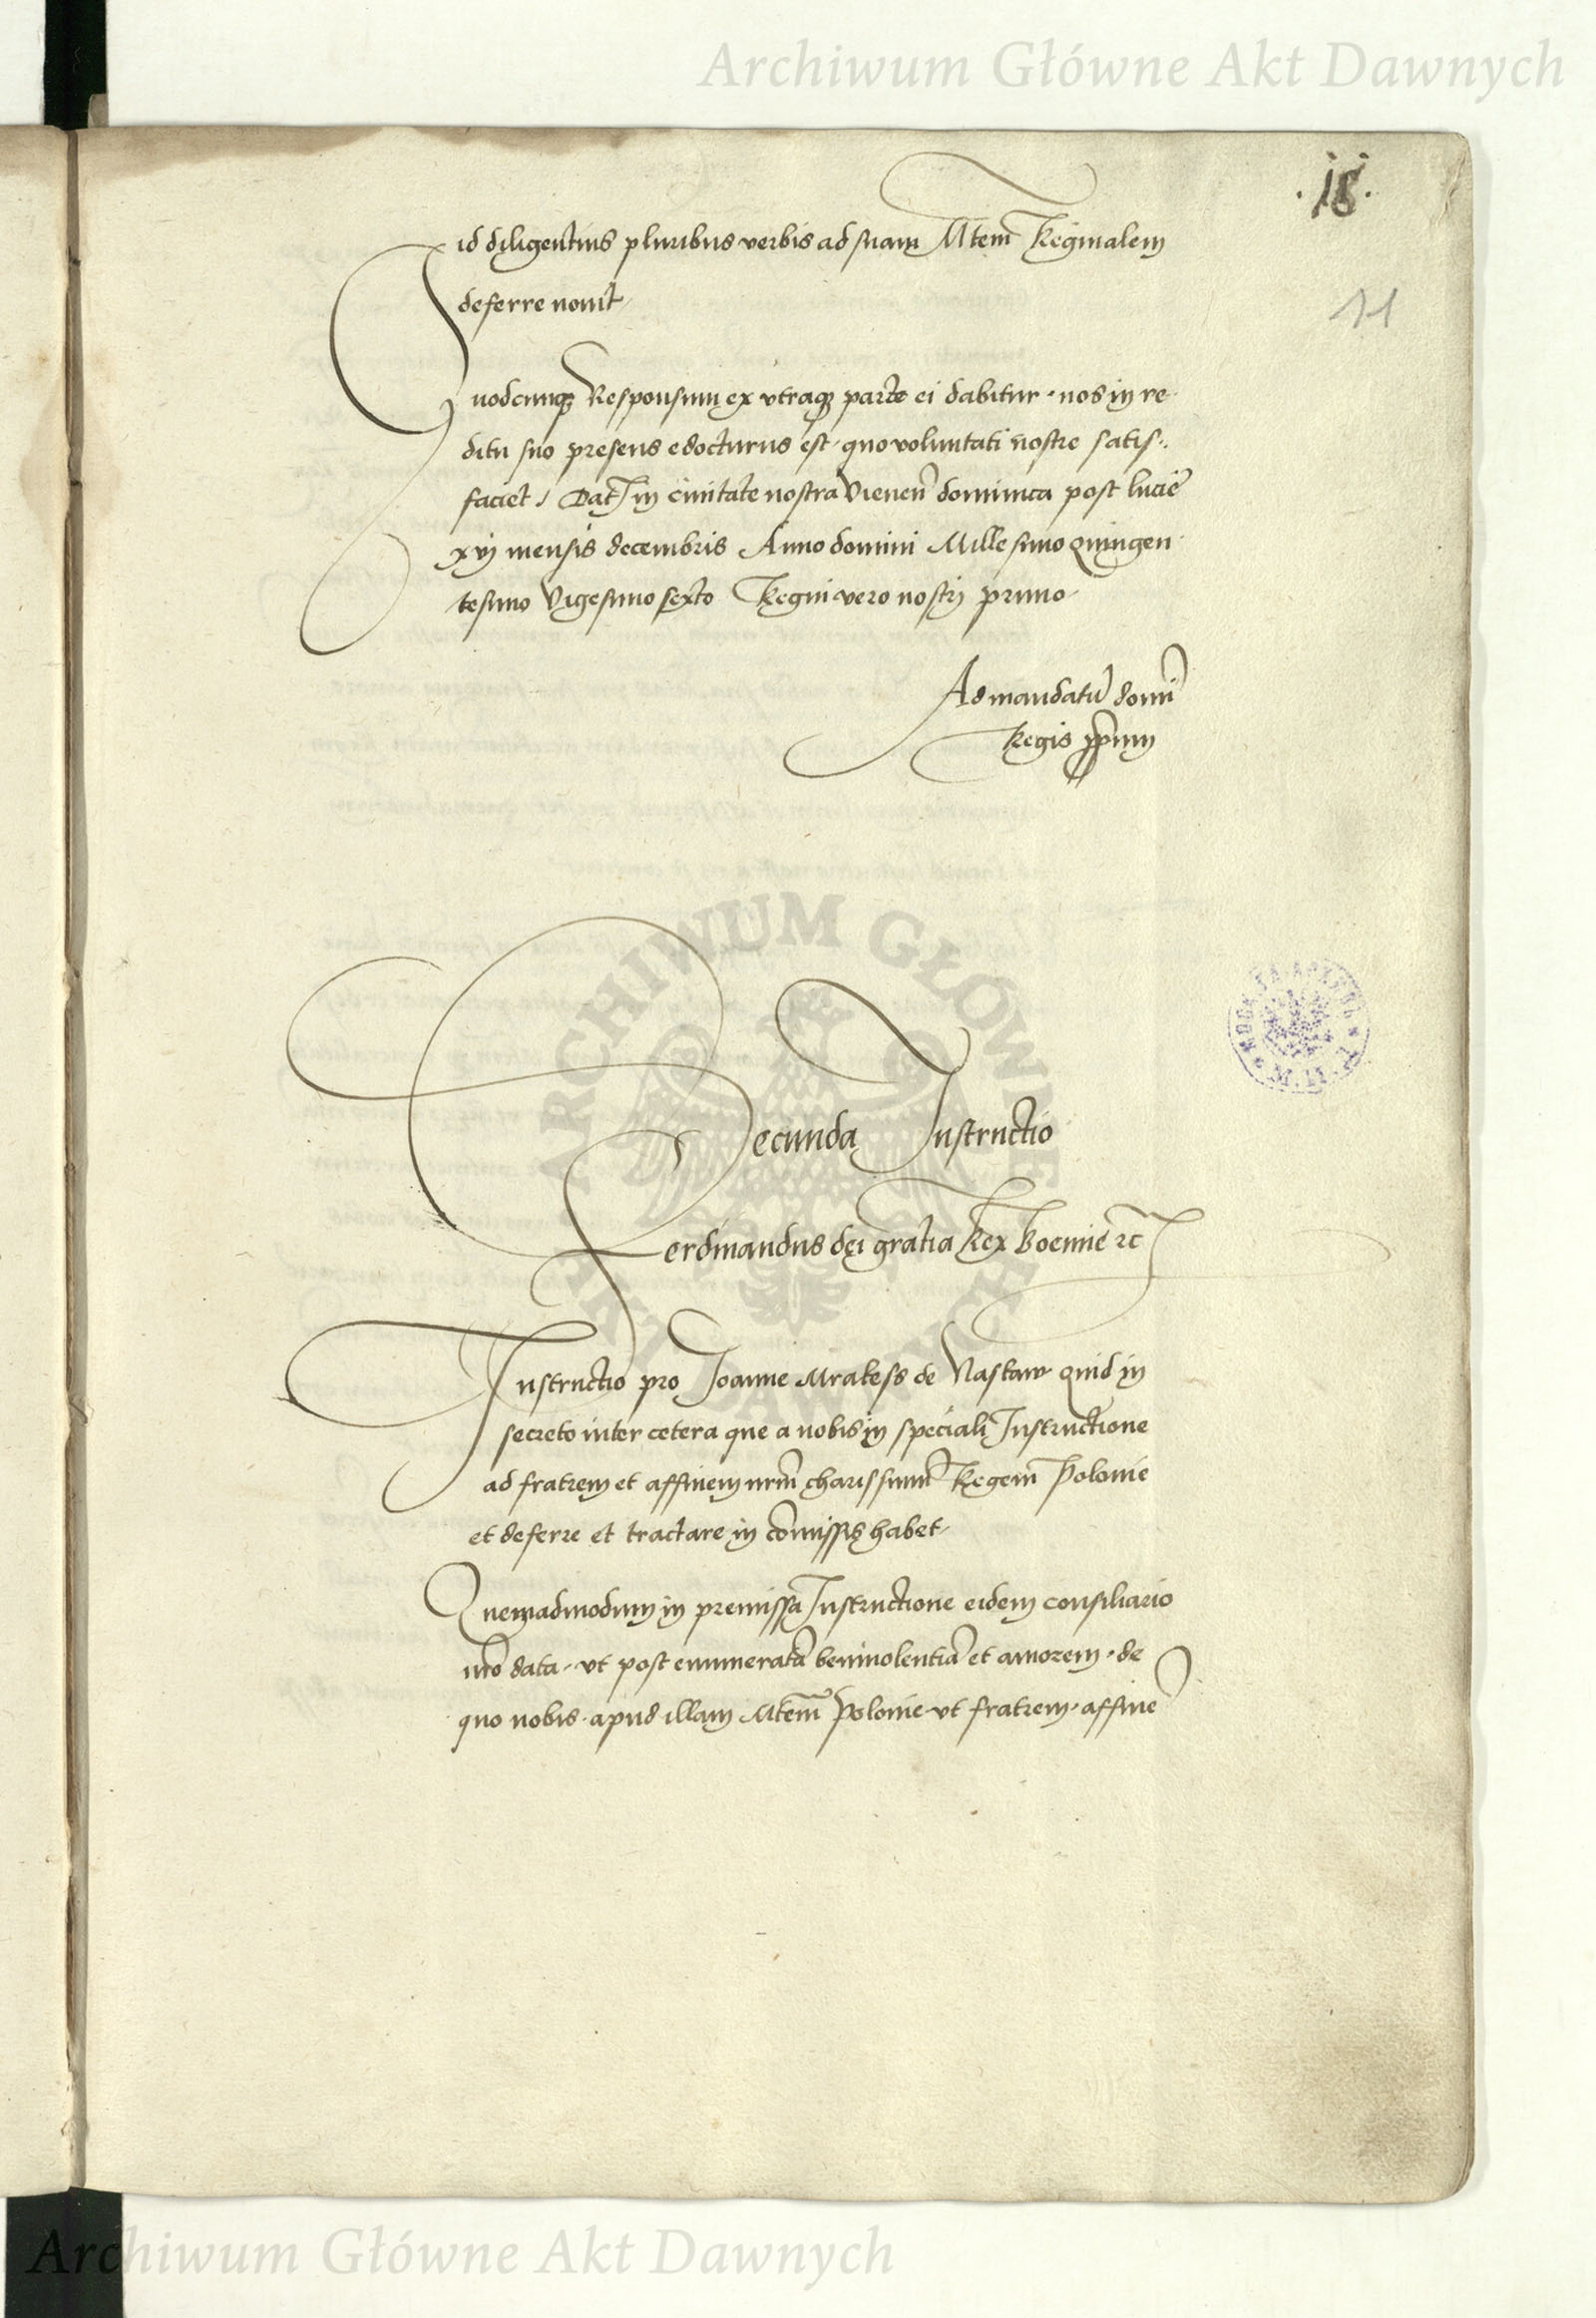 Archiwum Główne Akt Dawnych
.18.
11
id diligentius pluribus verbis ad suam Mtem Reginalem
deferre novit
Quodcunqȝ Responsum ex utraqȝ parte ei dabitur · nos in re
ditu suo presens edocturus est · quo voluntati nostre satis
faciet / Dat in Civitate nostra Vienen dominica post lucie
xvj mensis decembris Anno domini Millesimo Quingen
tesimo Vigesimo sexto Regni vero nostrj primo
Ad mandatū domi
Regis ppium
Secunda Instructio
Ferdinandus dei gratia Rex Boemie ꝛc
Instructio pro Joanne Mrakess de Naskaw quid in
secreto inter cetera que a nobis in speciali Instructione
ad fratrem et affinem nrm charissimū Regem Polonie
et deferre et tractare in cōmissis habet
Quemadmodum in premissa Instructione eidem consiliario
nro data · ut post enumeratā benivolentiā et amorem · de
quo nobis · apud illam Mtem Polonie ut fratrem · affinē
ARCHIWUM GŁÓWNE AKT DAWNYCH
Archiwum Główne Akt Dawnych